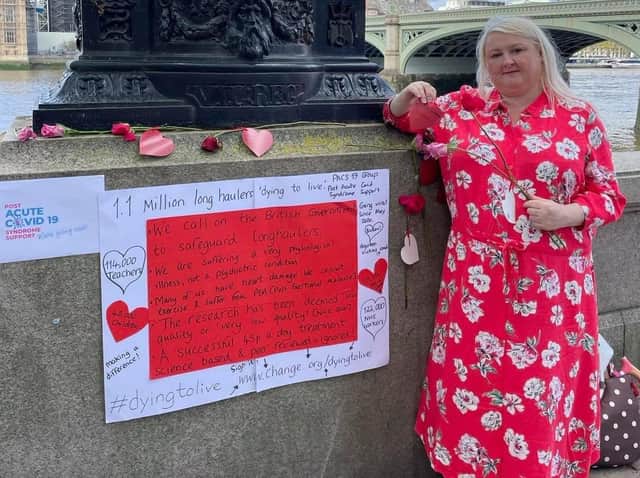 POST
ACUTE
COVID 19
SYNDROME
SUPPORT
1.1 Million long haulers 'dying to live'.
PACS 19 Group
Post Acute Covid
Syndrome Support
• We call on the British Government
to safeguard longhaulers.
• We are suffering a very physiological
illness, not a psychiatric condition
• Many of us have heart damage. We cannot
exercise & suffer from
• The research has been deemed 'low
quality or very low quality'
• A successful 45p a day treatment
science based & peer reviewed - ignored!
114,000
Teachers
making a
difference!
122,000
NHS
workers
Sign:
www.change.org/dyingtolive
#dyingtolive